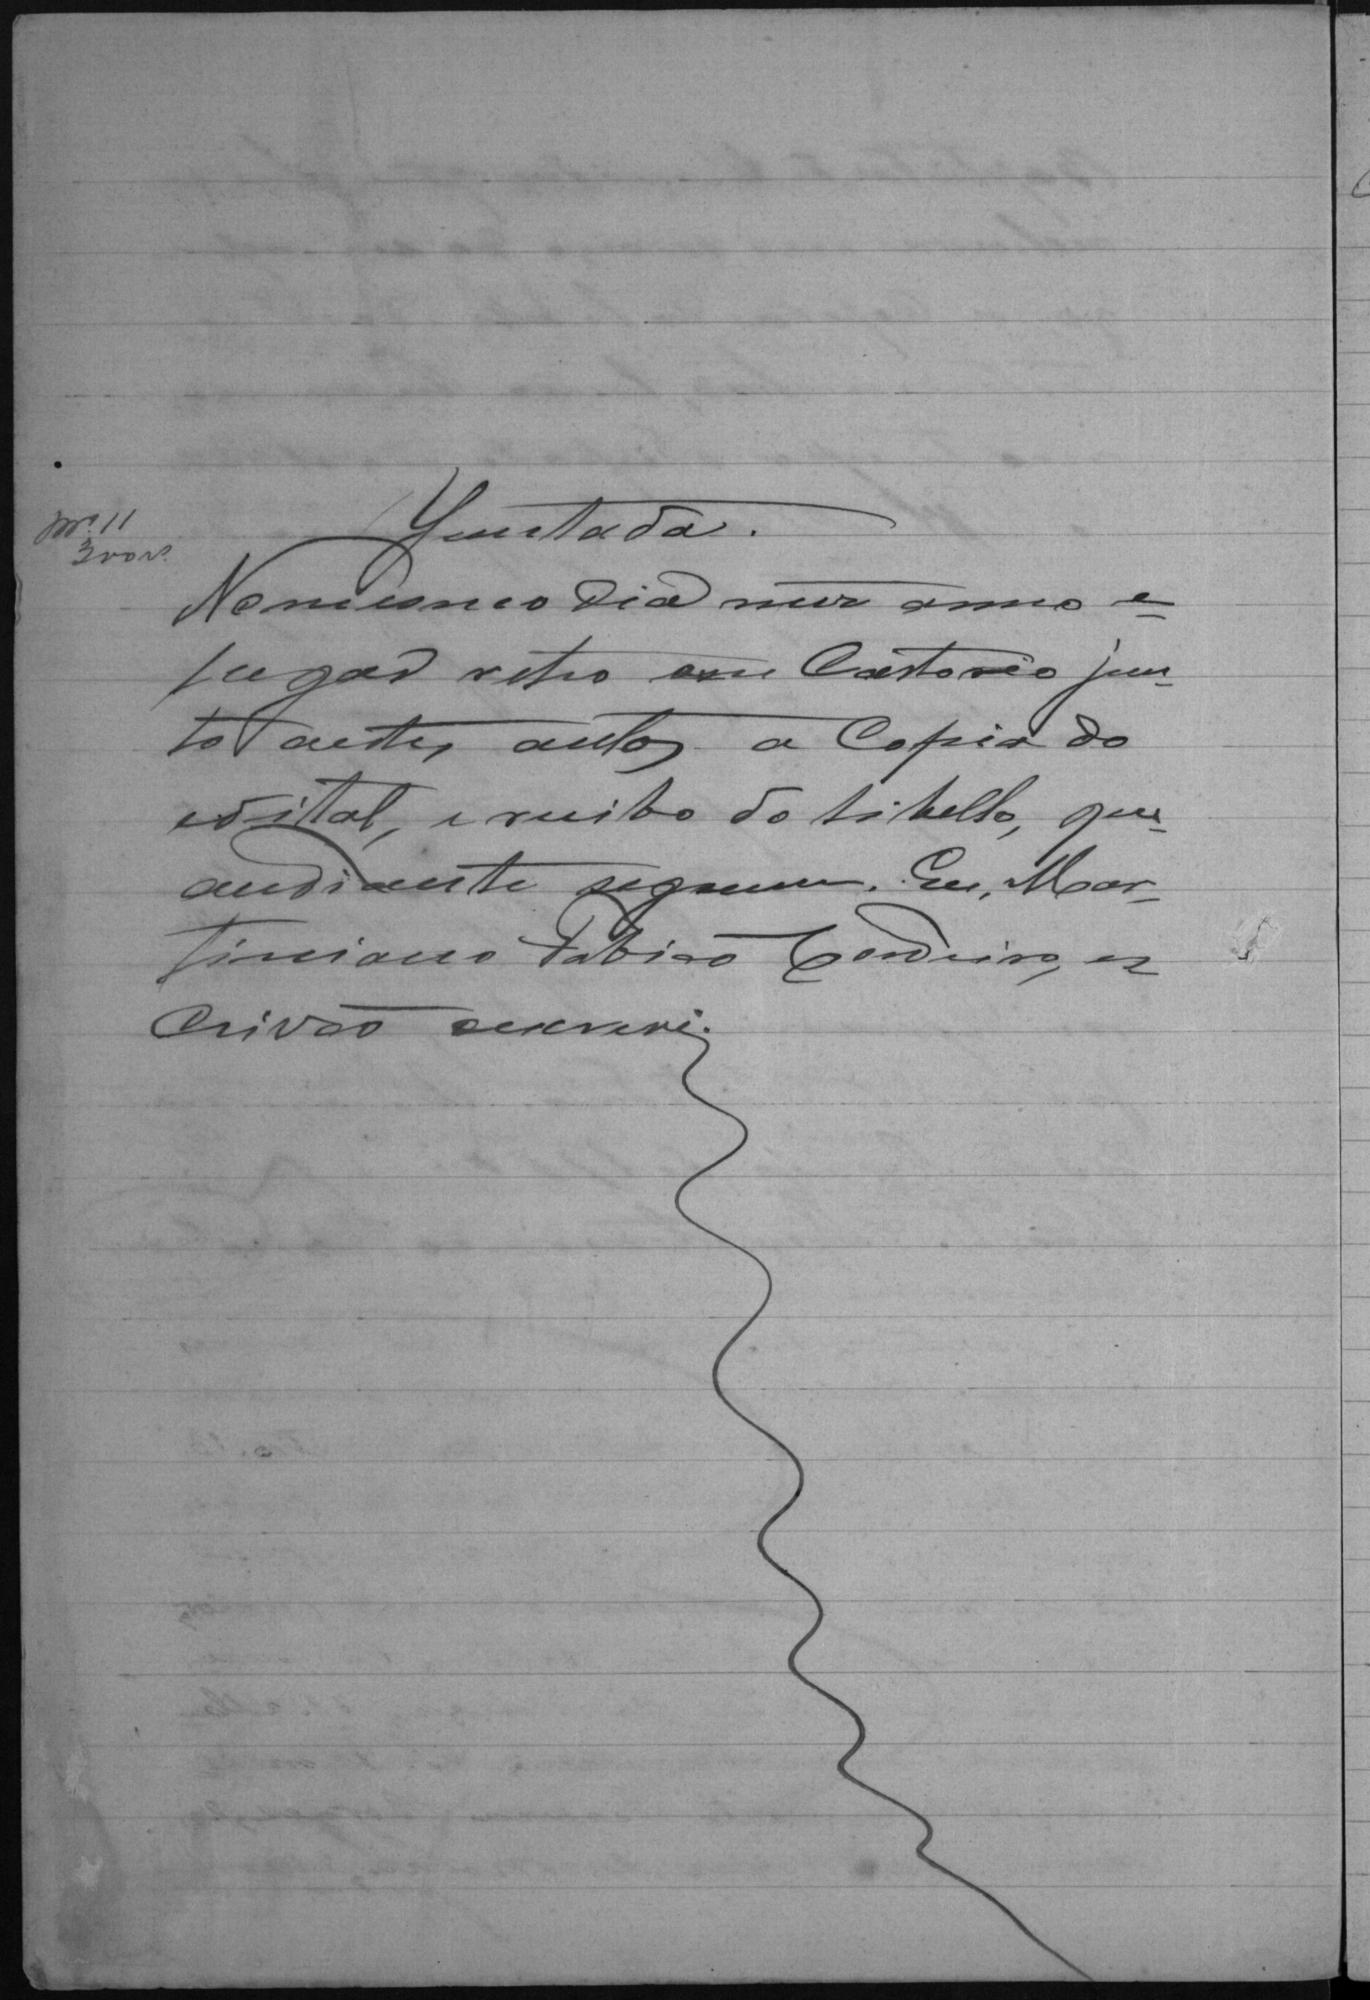 Juntada.
No mesmo dia mez anno e
lugar retro em Cartorio jun-
to aestes autos a Copia do
edital, e recibo do libello, que
aodiante seguem. Eu, Mar-
tiniano Fabião Cordeiro, es
Crivão escrevi.